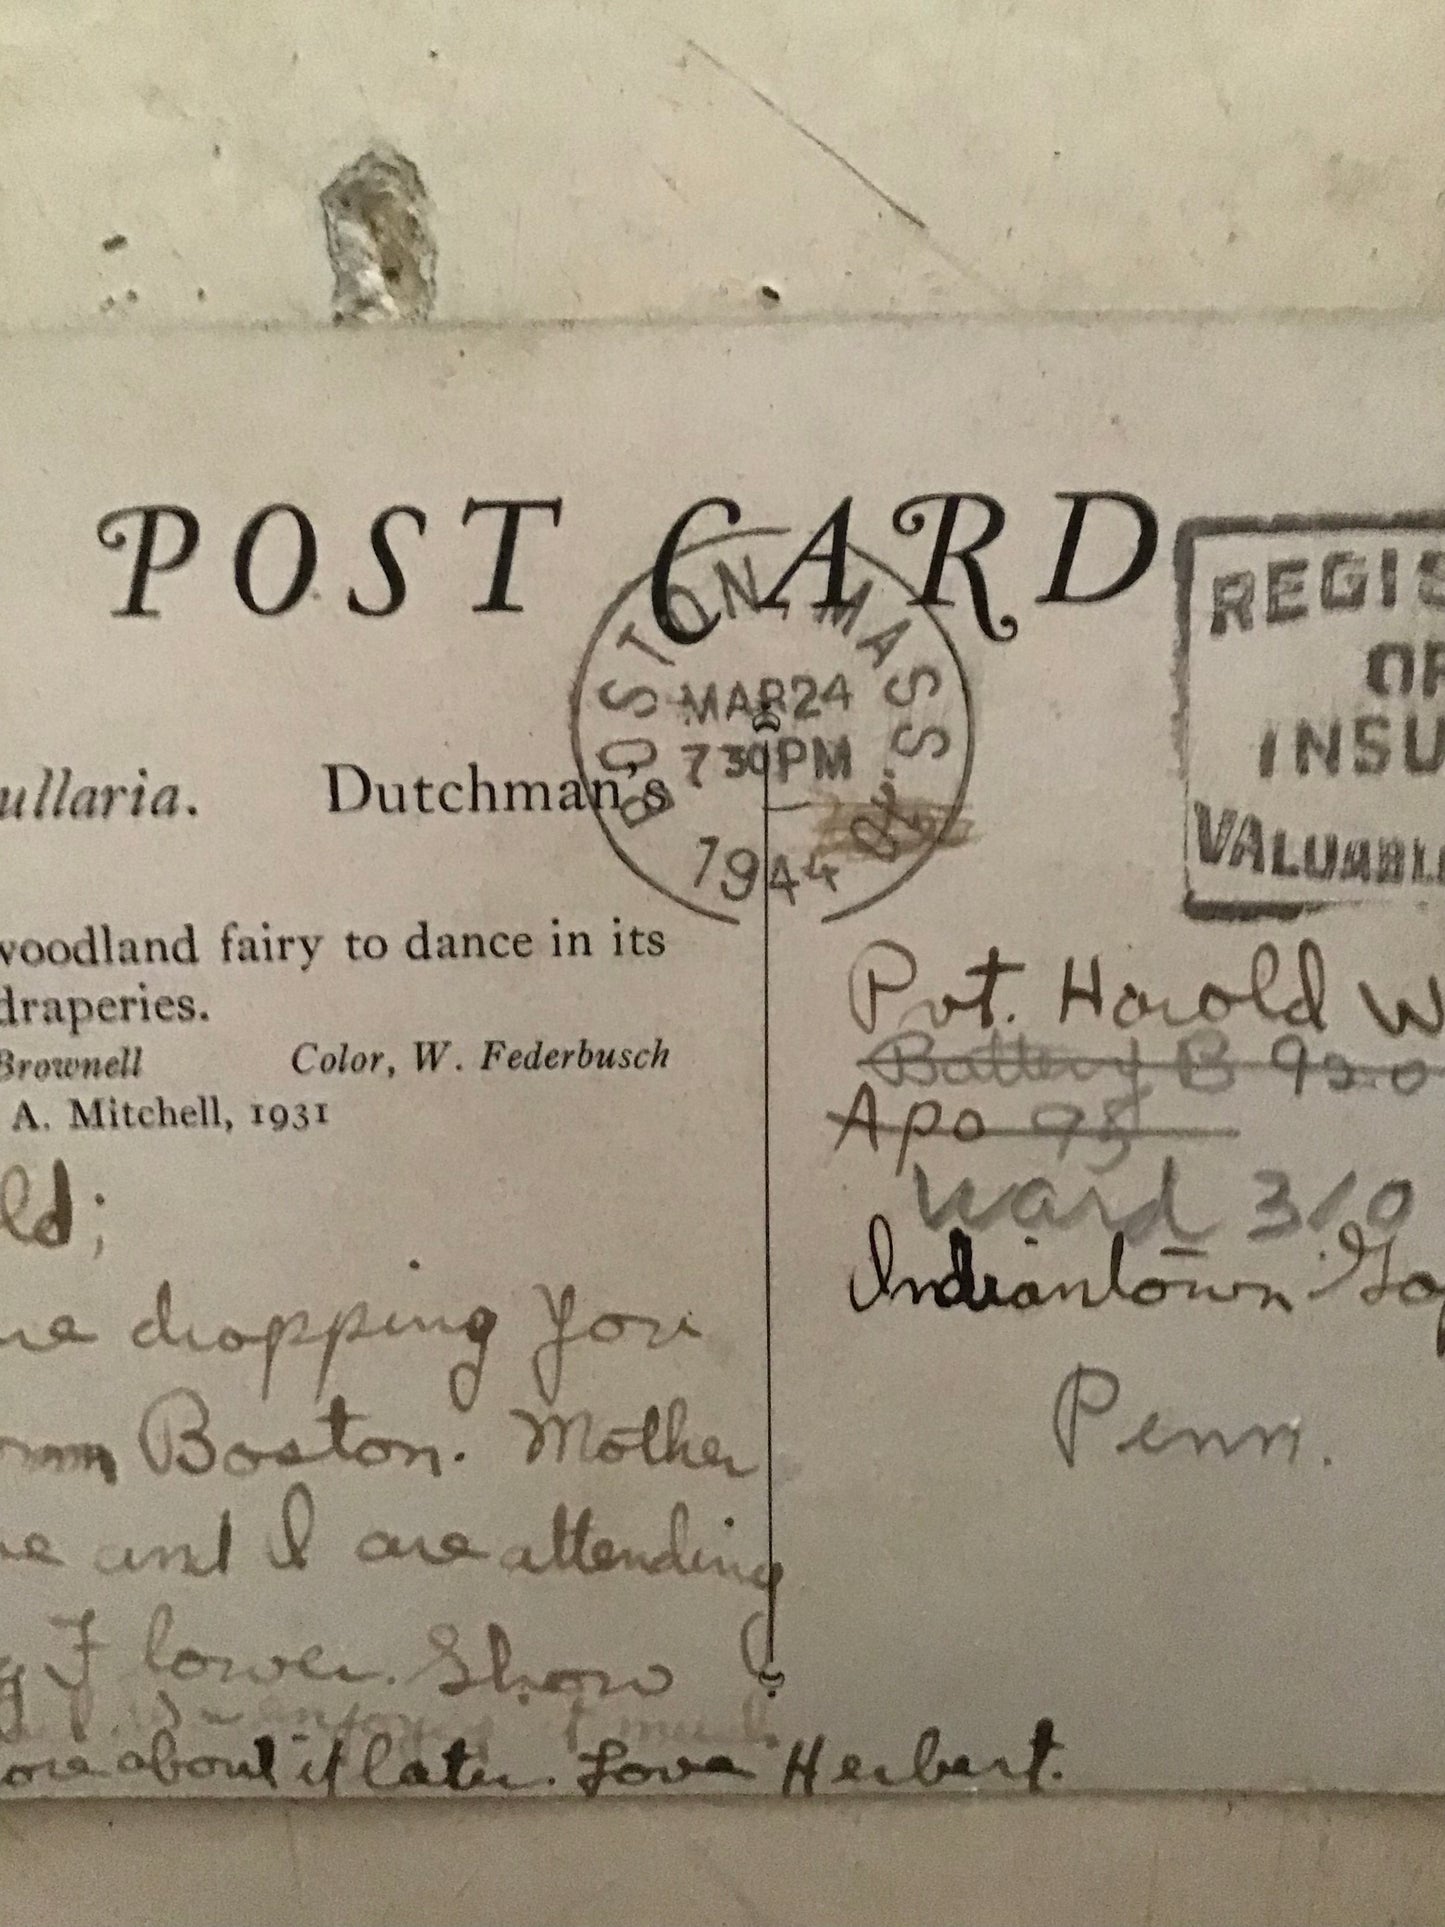 POST CARD
BOSTON, MASS.
MAR 24
7 30 PM
1944
REGIS
OR
INSU
VALUABL
ullaria. Dutchman's
woodland fairy to dance in its
draperies.
Brownell Color, W. Federbusch
A. Mitchell, 1931
ld;
dropping you
Boston. Mother
and I are attending
Flower Show
enjoying much
ore about it later. Love Herbert.
Pvt. Harold W
Battery B 920
Apo 95
Ward 310
Indiantown Gap
Penn.